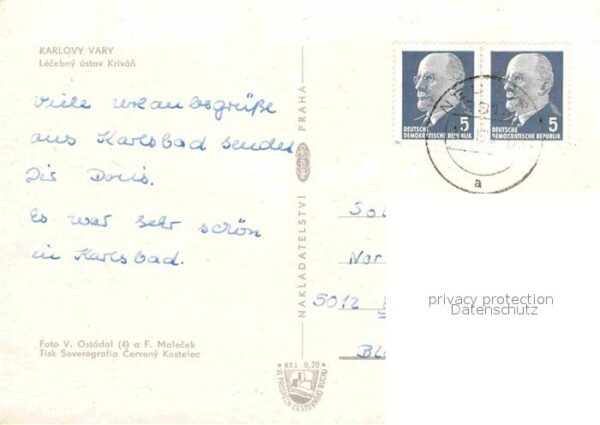 KARLOVY VARY
Léčebný ústav Kriváň
Viele Urlaubsgrüße
aus Karlsbad sendet
Dir Doris.
Es war sehr schön
in Karlsbad.
Foto V. Ostádal (4) a F. Maleček
Tisk Severografia Červený Kostelec
NAKLADATELSTVÍ
PRAHA
Kčs 0,20
VE PROSPĚCH CESTOVNÍHO RUCHU
5
DEUTSCHE
DEMOKRATISCHE REPUBLIK
5
DEUTSCHE
DEMOKRATISCHE REPUBLIK
a
Nor
5012
privacy protection
Datenschutz